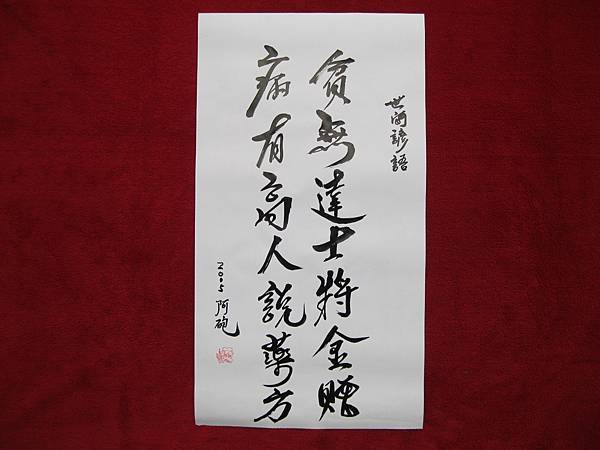 世間諺語
貧無達士將金贈
病有高人說藥方
2005 阿砲